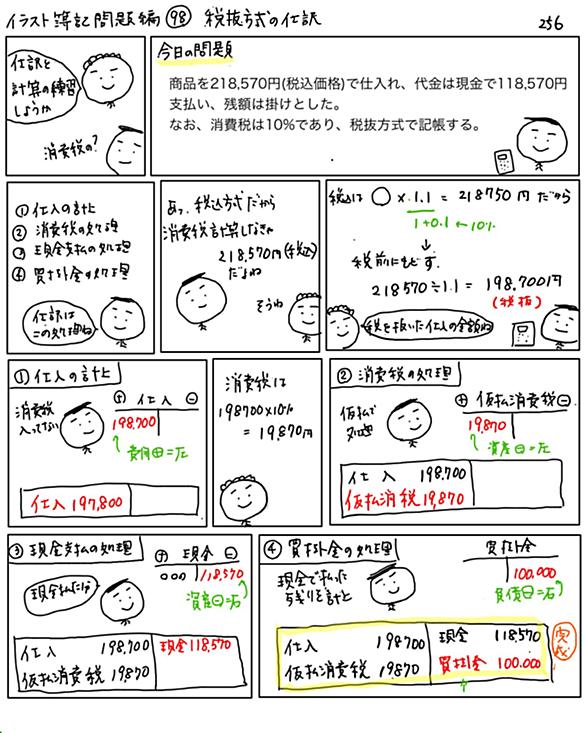 イラスト簿記問題編 98 税抜方式の仕訳
256
仕訳と
計算の練習
しようか
消費税の?
今日の問題
商品を218,570円(税込価格)で仕入れ、代金は現金で118,570円
支払い、残額は掛けとした。
なお、消費税は10%であり、税抜方式で記帳する。
① 仕入の計上
② 消費税の処理
③ 現金支払の処理
④ 買掛金の処理
仕訳は
この処理ね
あっ、税込方式だから
消費税計算しなきゃ
218,570円(税込)
だよね
そうね
税込は ○ × 1.1 = 218750円 だから
1+0.1 ← 10%
↓
税前にもどす。
218570÷1.1 = 198,700円
(税抜)
税を抜いた仕入の金額ね
① 仕入の計上
消費税
入ってない
⊕ 仕入 ⊖
198,700
費用⊕=左
仕入 197,800
消費税は
198700×10%
= 19,870円
② 消費税の処理
仮払で
処理
⊕ 仮払消費税 ⊖
19,870
資産⊕=左
仕入 198,700
仮払消税 19,870
③ 現金支払の処理
現金払った分
⊕ 現金 ⊖
000 118,570
資産⊖=右
仕入 198,700 現金 118,570
仮払消費税 19870
④ 買掛金の処理
現金で払った
残りを計上
買掛金
100,000
負債⊕=右
仕入 198700 現金 118,570
仮払消費税 19870 買掛金 100,000
完成